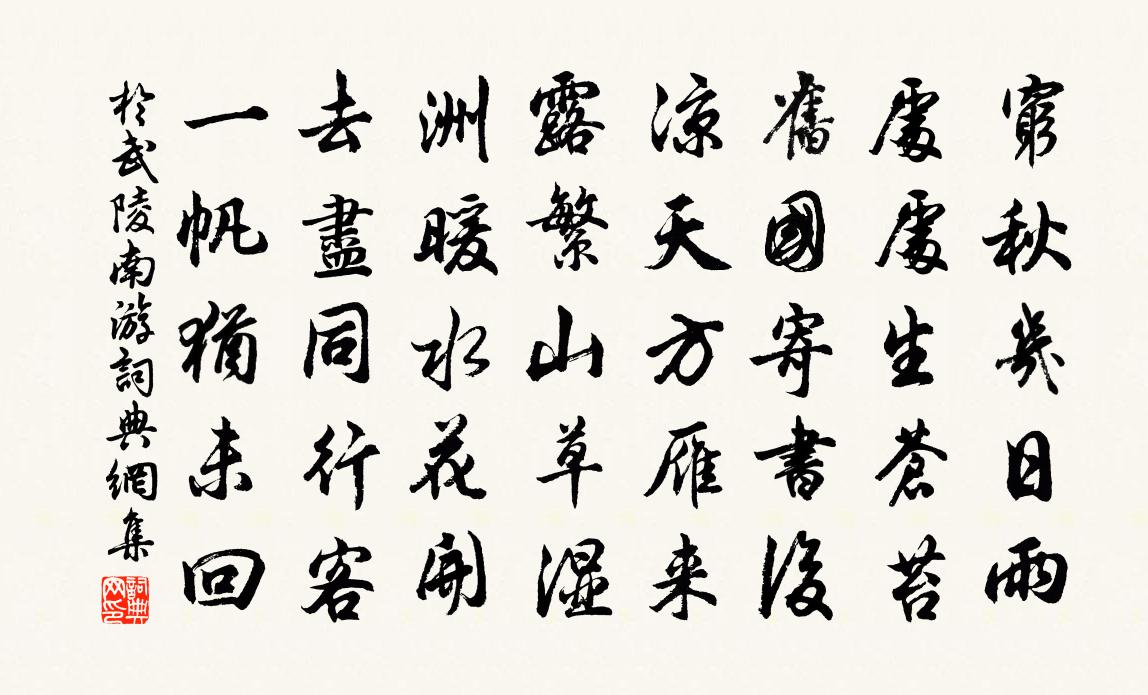 窮秋幾日雨
處處生蒼苔
舊國寄書後
凉天方雁来
露繁山草濕
洲暖水花開
去盡同行客
一帆猶未回
於武陵南游詞典網集
詞典网印